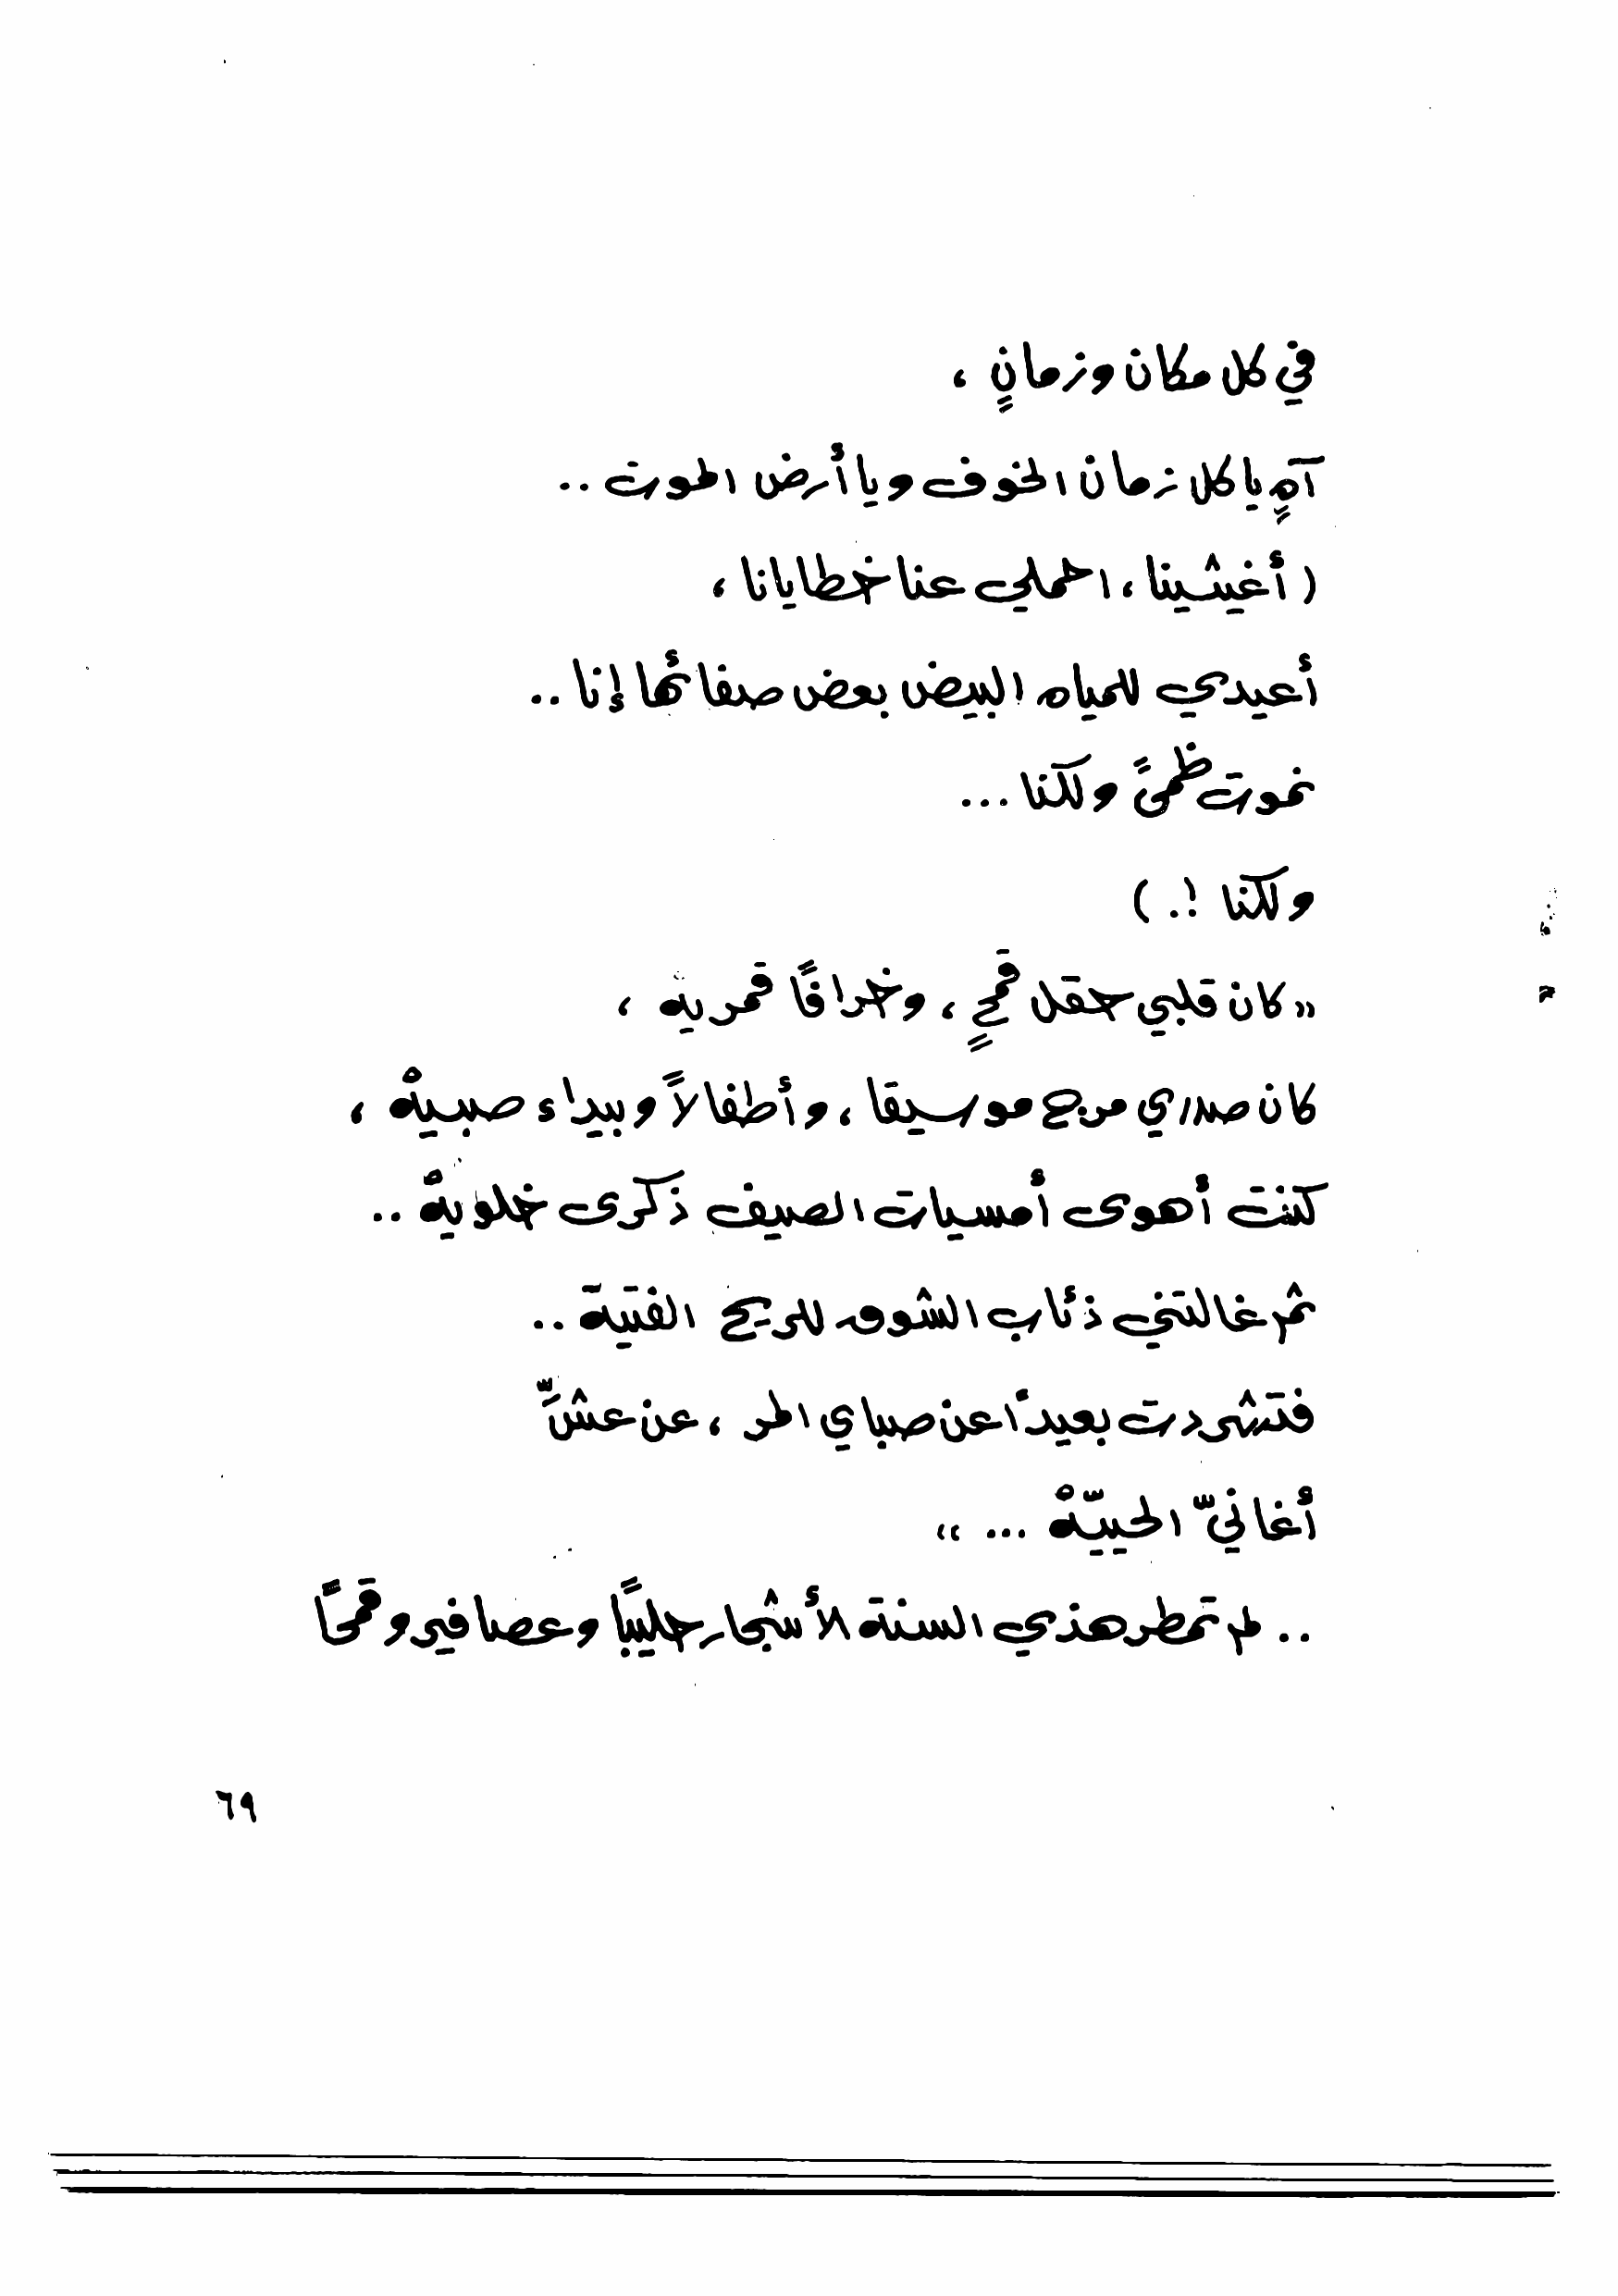 في كل مكان وزمانٍ ،
آهٍ يا كل زمان الخوف ويا أرض الموت ..
( أغيثينا ، احملي عنا خطايانا ،
أعيدي للمياه البيض بعض صفائها إنا ..
نموت ظمىً ولكنا ...
ولكنا !. )
« كان قلبي حقل قمحٍ ، وخرافًا قمريه ،
كان صدري مرج موسيقا ، وأطفالاً وبيداء صبيهْ ،
كنت أهوى أمسيات الصيف ذكرى خلويهْ ..
ثم غالتني ذئاب الشوق للريح الفتية ..
فتشردت بعيدًا عن صباي المر ، عن عشَّ
أغانيّ الحييّهْ ... »
.. لم تمطر هذي السنة الأشجار حليبًا وعصافير وقمحًا
٦٩